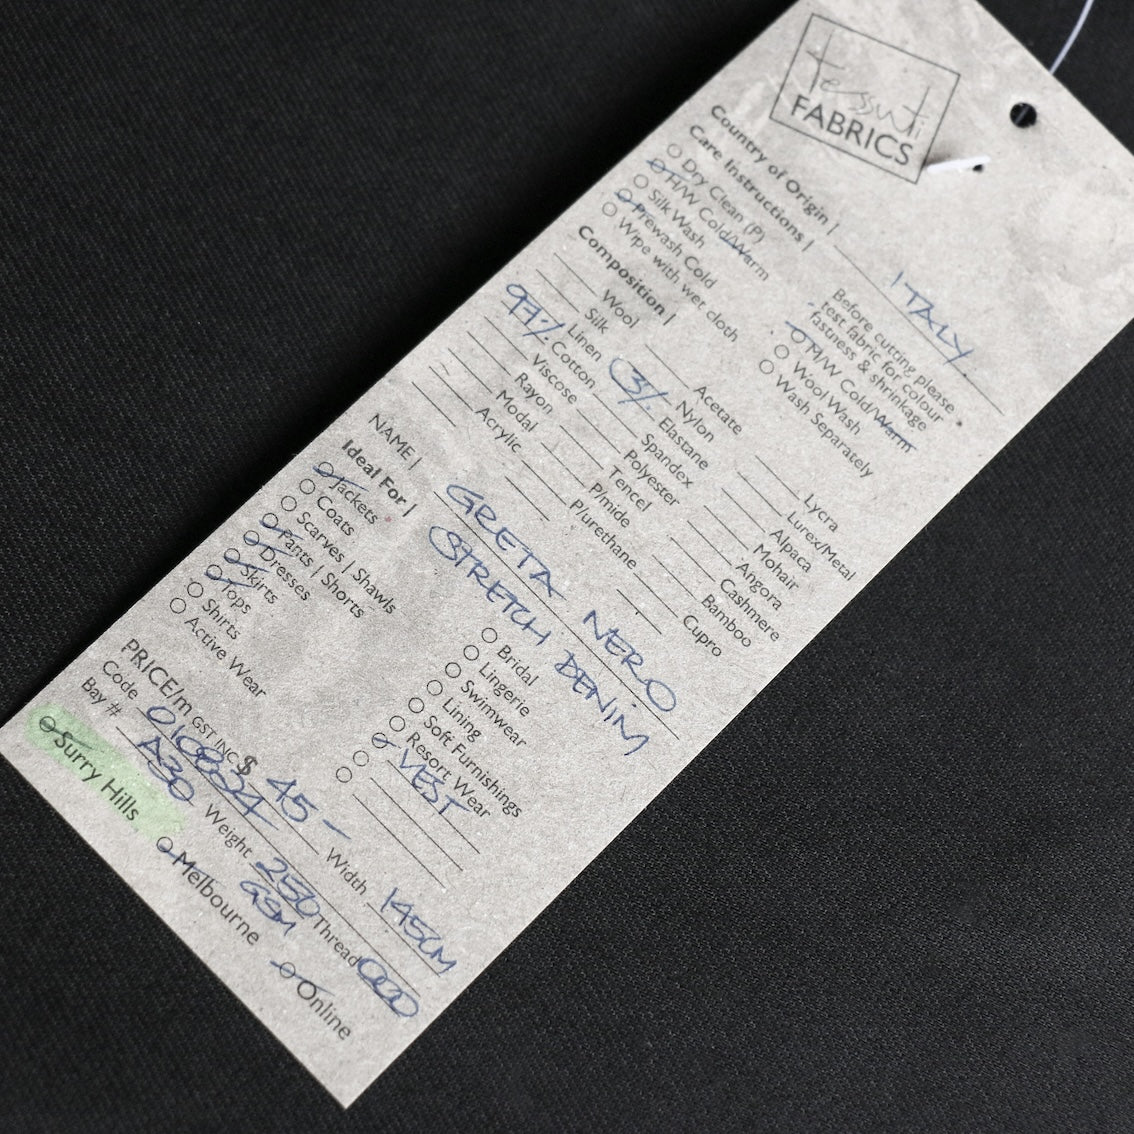 tessuti
FABRICS
Country of Origin | ITALY
Care Instructions |
Dry Clean (P)
H/W Cold/Warm
Silk Wash
Prewash Cold
Wipe with wet cloth
Before cutting please
test fabric for colour
fastness & shrinkage
M/W Cold/Warm
Wool Wash
Wash Separately
Composition |
Wool
Silk
Linen
97% Cotton
Viscose
Rayon
Modal
Acrylic
Acetate
Nylon
3% Elastane
Spandex
Polyester
Tencel
P/mide
P/urethane
Lycra
Lurex/Metal
Alpaca
Mohair
Angora
Cashmere
Bamboo
Cupro
NAME | GRETA NERO
STRETCH DENIM
Ideal For |
Jackets
Coats
Scarves | Shawls
Pants | Shorts
Dresses
Skirts
Tops
Shirts
Active Wear
Bridal
Lingerie
Swimwear
Lining
Soft Furnishings
Resort Wear
VEST
PRICE/m GST INC $ 45 - Width 145CM
Code 010834 Weight 250 GSM Thread 000
Bay # A30
Surry Hills
Melbourne
Online